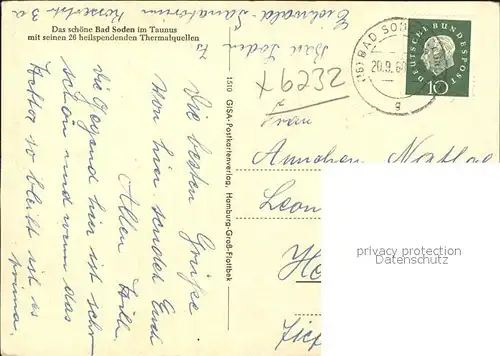 Das schöne Bad Soden im Taunus
mit seinen 26 heilspendenden Thermalquellen
Eichwald-Sanatorium
Bad Soden Ts
Die besten Grüße
von hier sendet Euch
Allen
Die Gegend hier ist sehr
schön und wenn das
so bleibt ist es
prima.
1510 GISA-Postkartenverlag, Hamburg-Groß-Flottbek
BAD SOD
20.9.60
g
DEUTSCHE BUNDESPOST
10
Frau
Annchen
Leon
privacy protection
Datenschutz